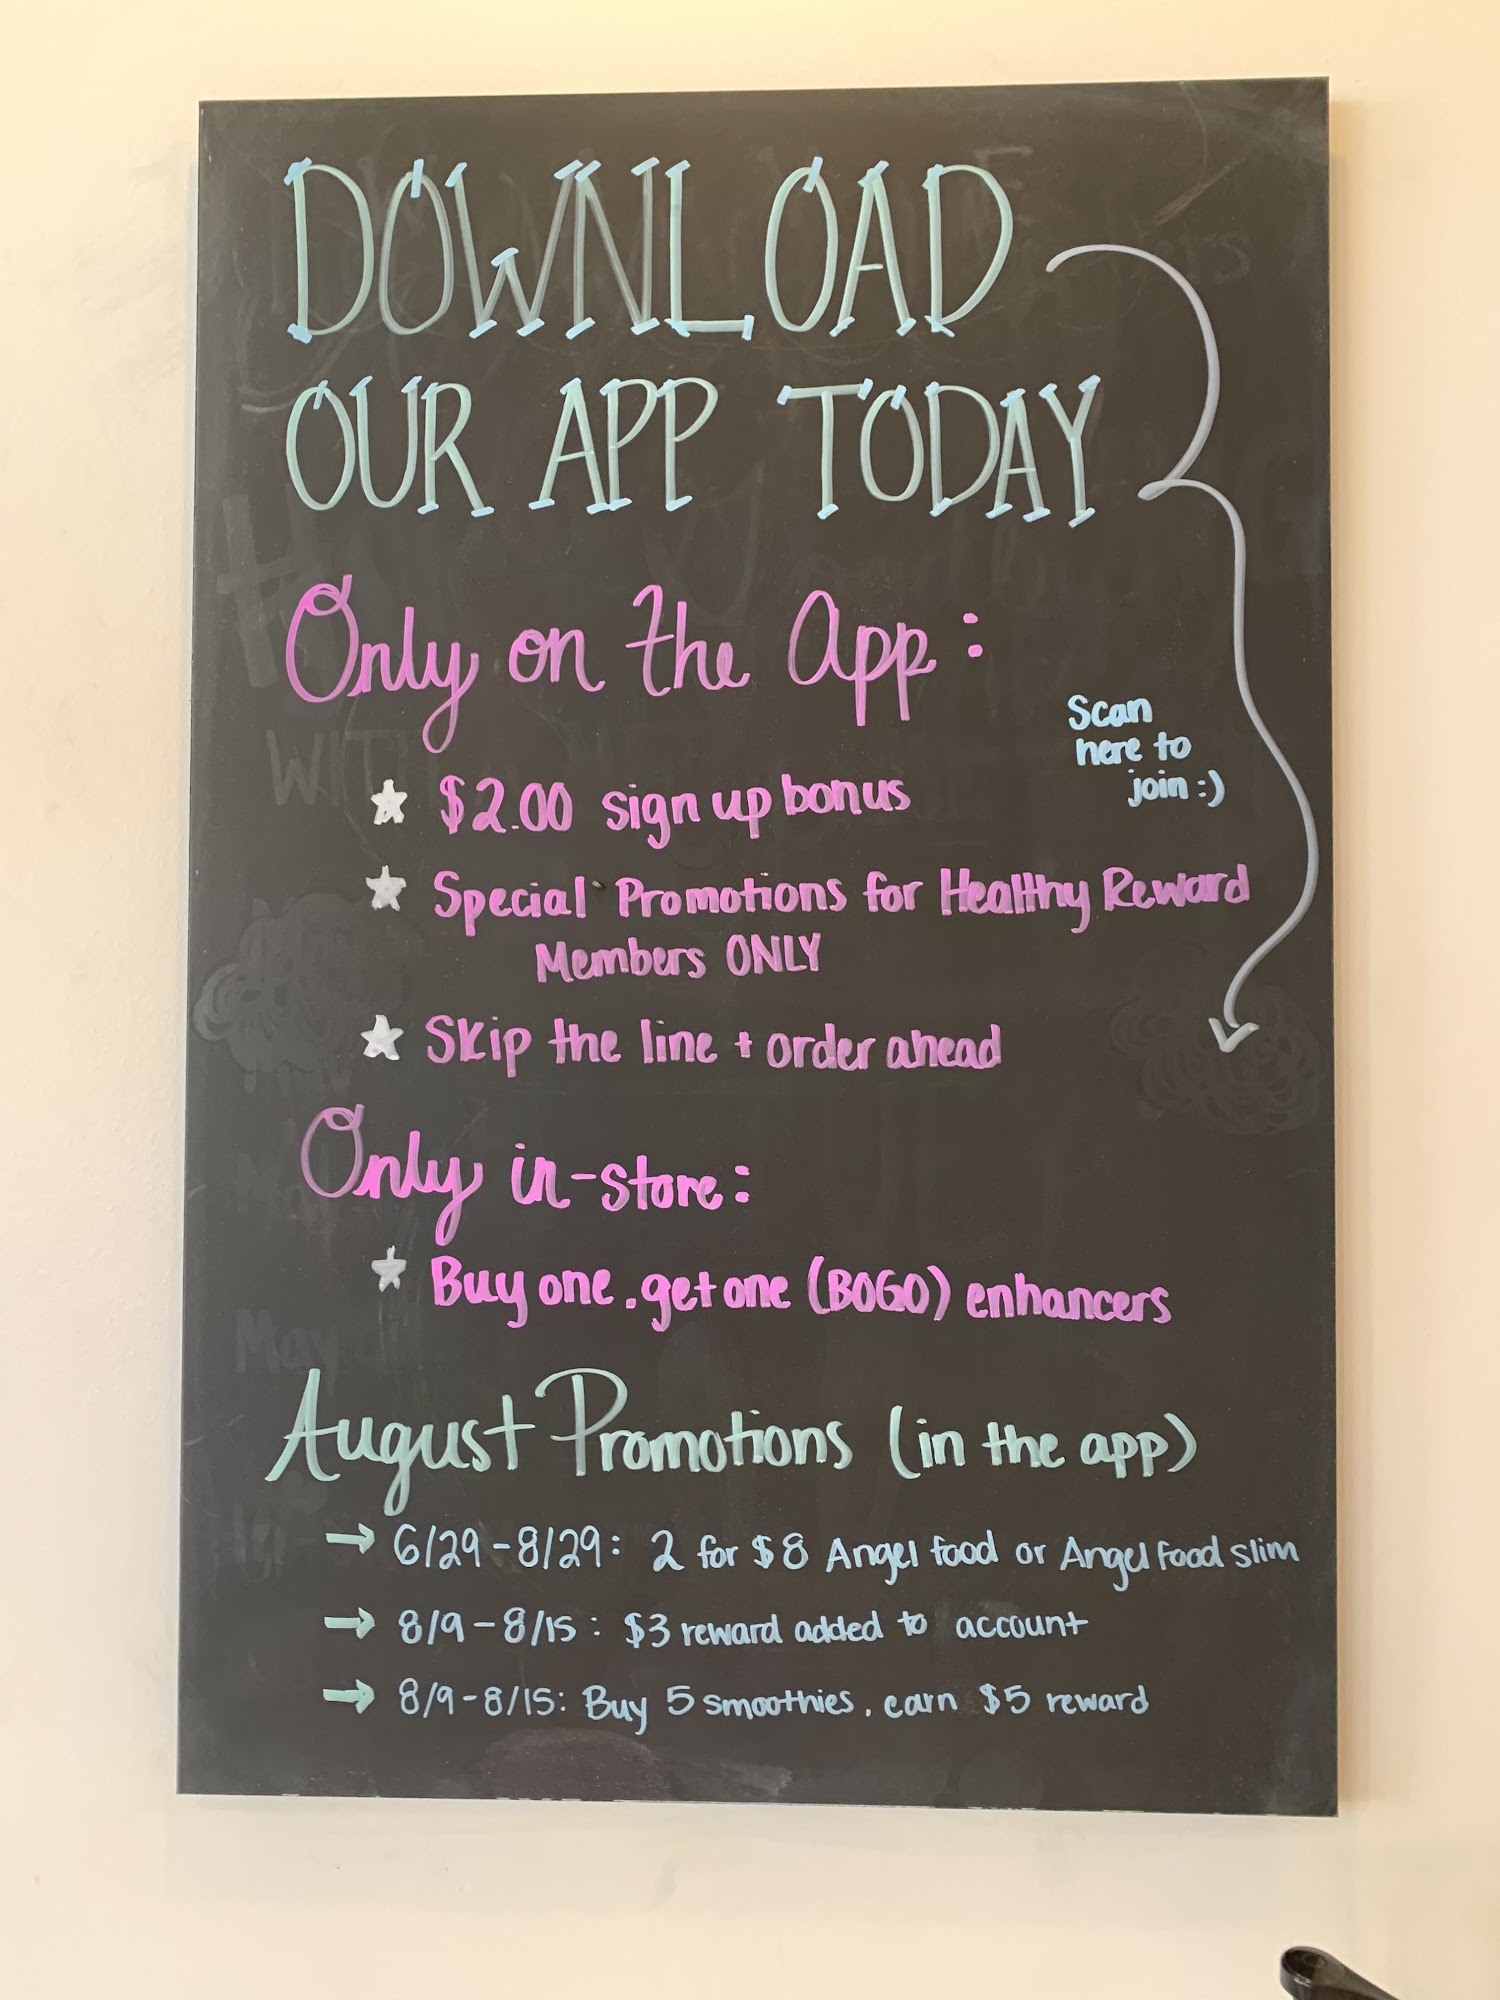 DOWNLOAD
OUR APP TODAY
Only on the App:
Scan
here to
join :)
$2.00 sign up bonus
Special Promotions for Healthy Reward
Members ONLY
Skip the line + order ahead
Only in-store:
Buy one, get one (BOGO) enhancers
August Promotions (in the app)
→ 6/29-8/29: 2 for $8 Angel food or Angel Food slim
→ 8/9-8/15: $3 reward added to account
→ 8/9-8/15: Buy 5 smoothies, earn $5 reward